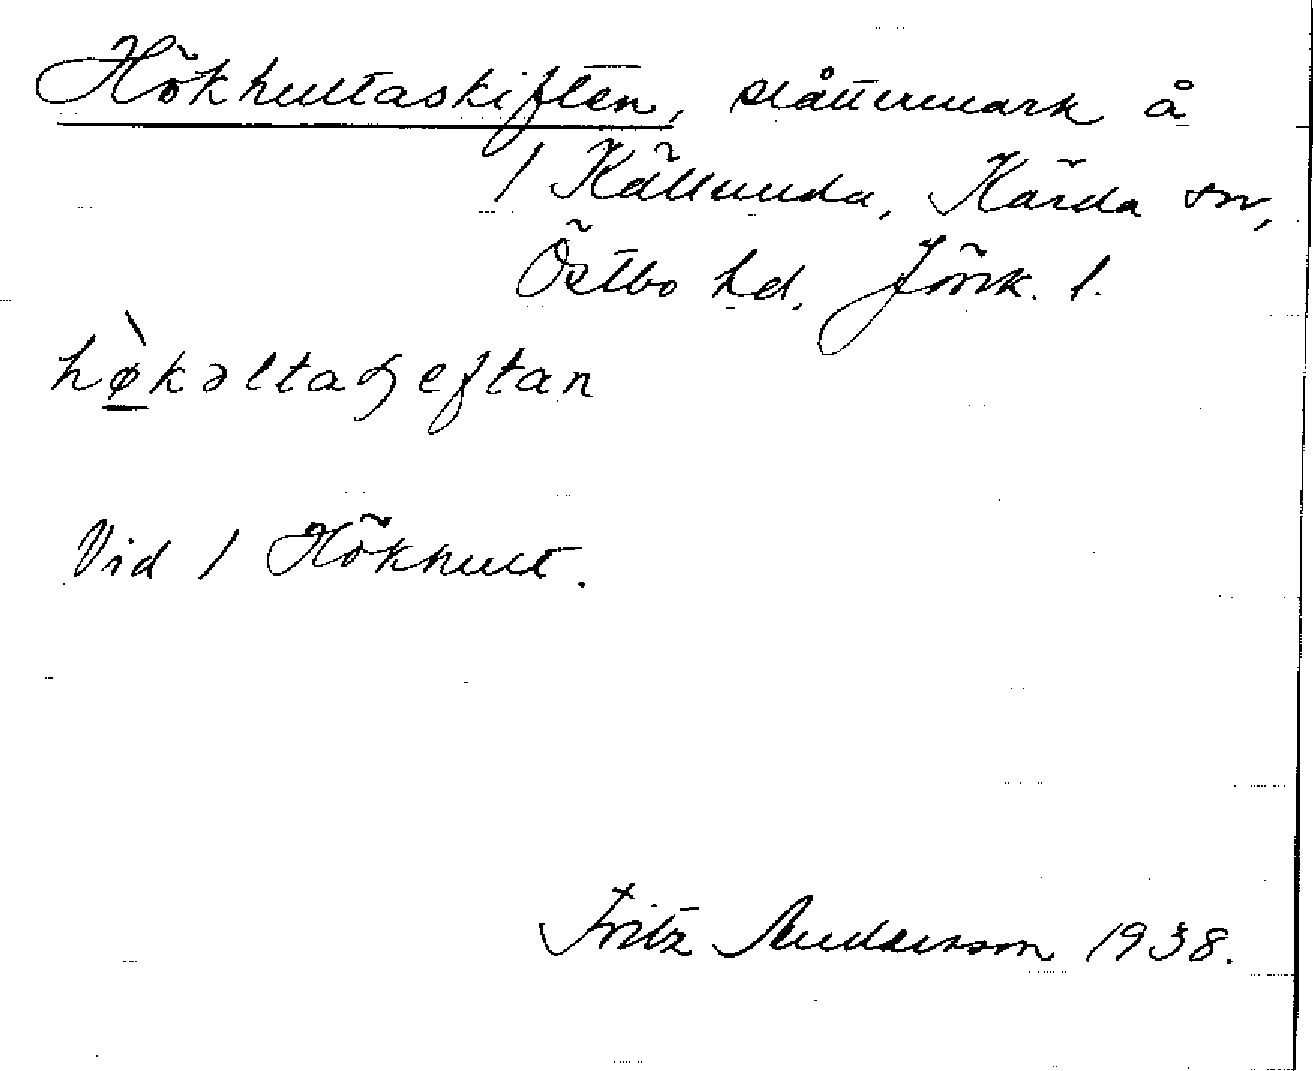 Hökhultaskiften, slåttermark å
/ Källunda, Kärda sn,
Östbo hd. Jönk. l.
hø̀kəltaʃeftan
Vid / Hökhult.
Fritz Anderson 1938.